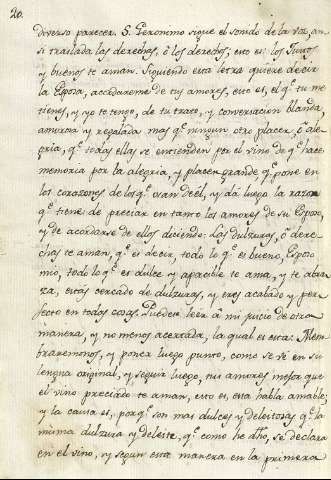 20.
diverso parecer. S. Geronimo sigue el sonido de la voz, an-
si traslada las derechas, ó los derechos; esto es: los Justos
y buenos te aman. Siguiendo esta letra quiere decir
la Esposa, acordaréme de tus amores, esto es, el q.e tu me
tienes, y yo te tengo, de tu trato, y conversacion blanda,
amorosa y regalada mas q.e ningun otro placer, ó ale-
gria, q.e todas ellas se entienden por el vino de q.e hace
memoria por la alegria, y placer grande q.e pone en
los corazones de los q.e usan de él, y dá luego la razon
q.e tiene de preciar en tanto los amores de su Esposo,
y de acordarse de ellos diciendo: las dulzuras, ó dere-
chas te aman, q.e es decir, todo lo q.e es bueno, Esposo
mio, todo lo q.e es dulce y apacible te ama, y te abra-
za, estás cercado de dulzuras, y eres acabado y per-
fecto en todas cosas. Puedese leer á mi juicio de otra
manera, y no menos acertada, la qual es esta: Mem-
braremonos, y poner luego punto, como se vé en su
lengua original, y seguir luego, tus amores mejor que
el vino preciado te aman, esto es, esta habla amable;
y la causa es, porq.e son mas dulces y deleitosas q.e la
misma dulzura y deleite, q.e como he dho, se declara
en el vino, y segun esta manera en la primera